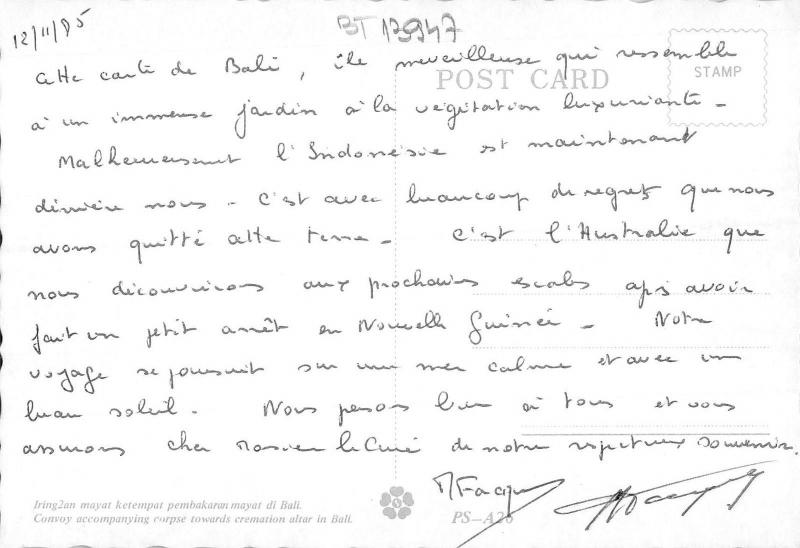 12/11/85
BT 13947
POST CARD
STAMP
cette carte de Bali, île merveilleuse qui ressemble
à un immense jardin à la végétation luxuriante -
Malheureusement l'Indonésie est maintenant
derrière nous - c'est avec beaucoup de regrets que nous
avons quitté cette terre - c'est l'Australie que
nous découvrirons aux prochaines escales aps avoir
fait un petit arrêt en Nouvelle Guinée - Notre
voyage se poursuit sur une mer calme et avec un
beau soleil - Nous pensons bien à tous et vous
assurons cher Monsieur le Curé de notre respectueux souvenir.
Iring2an mayat ketempat pembakaran mayat di Bali.
Convoy accompanying corpse towards cremation altar in Bali.
PS-A26